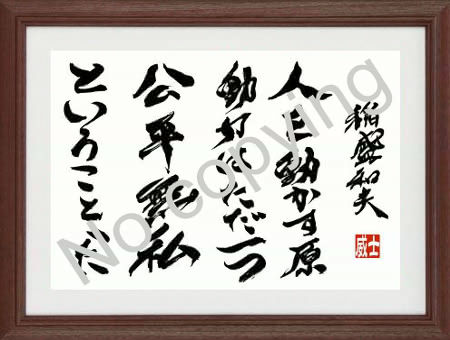 稲盛和夫
人を動かす原
動力はただ一つ
公平無私
ということだ
士威
No copying